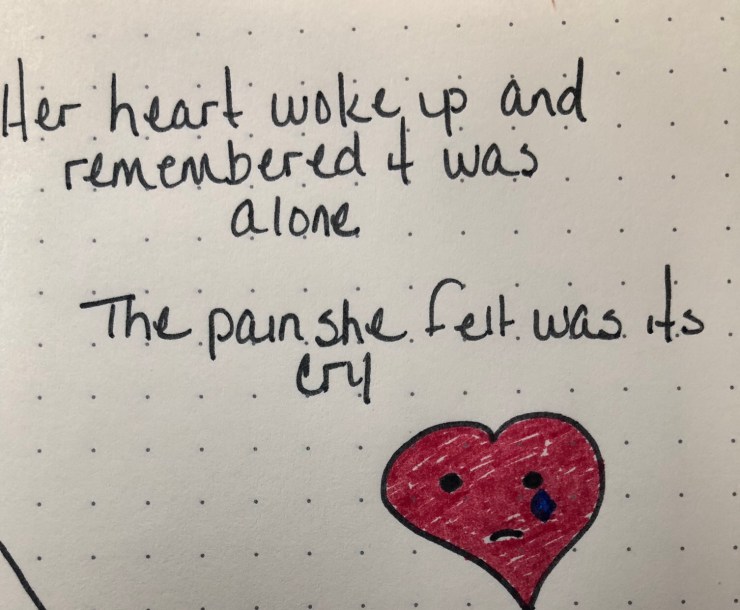 Her heart woke up and
remembered it was
alone
The pain she felt was its
cry